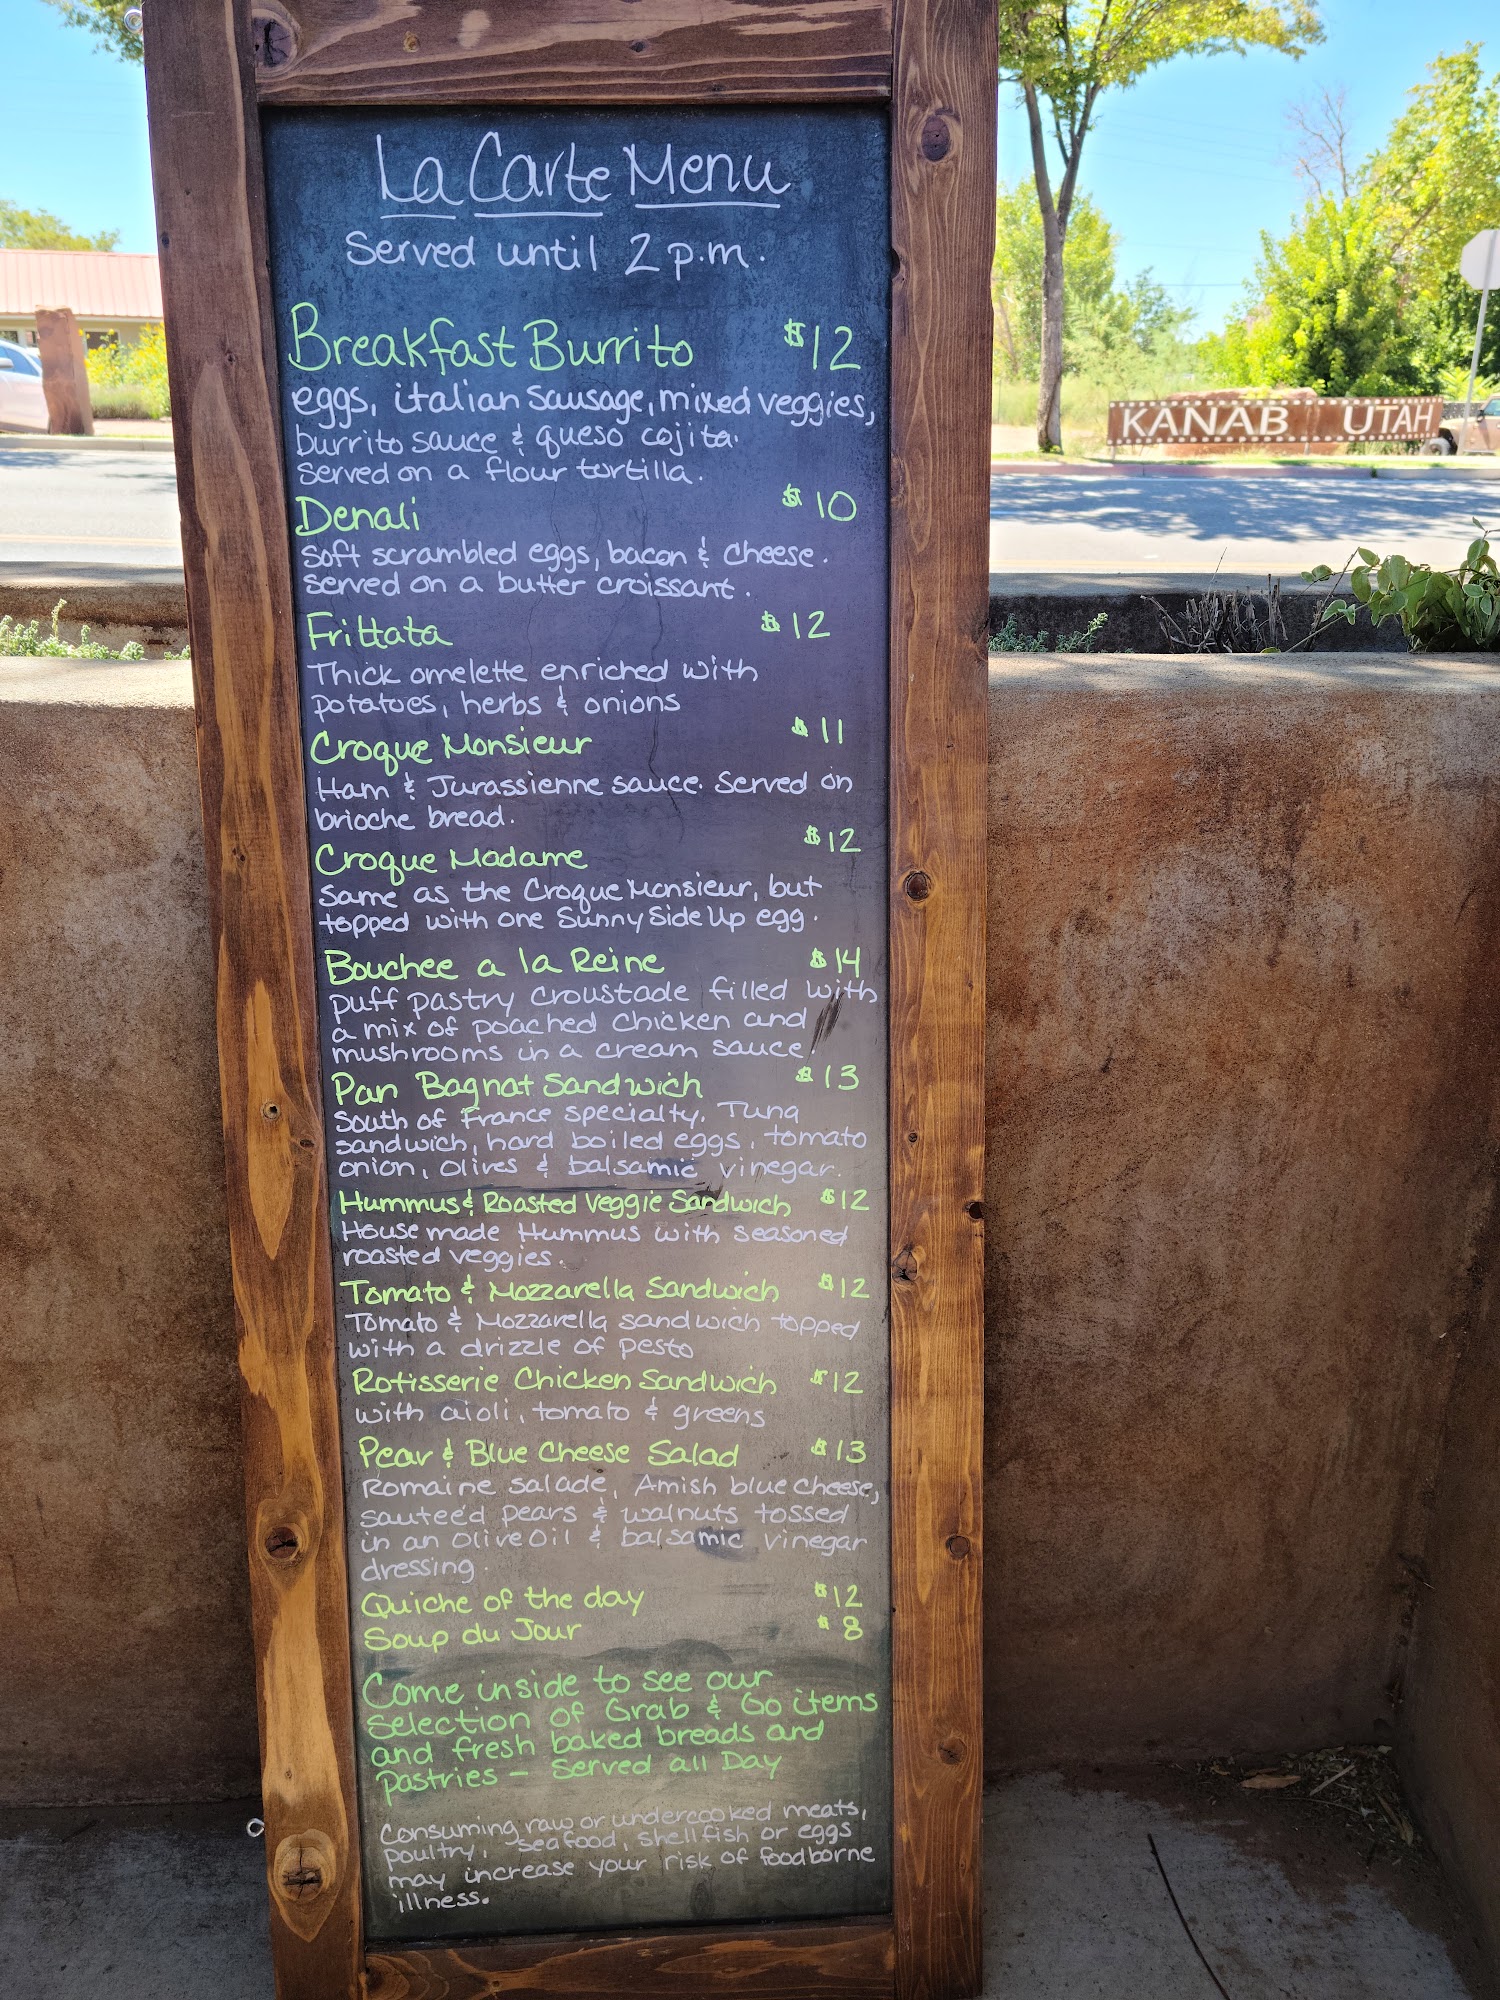 La Carte Menu
Served until 2 p.m.
Breakfast Burrito $12
eggs, italian sausage, mixed veggies,
burrito sauce & queso cojita.
Served on a flour tortilla.
Denali $10
Soft scrambled eggs, bacon & cheese.
Served on a butter croissant.
Frittata $12
Thick omelette enriched with
potatoes, herbs & onions
Croque Monsieur $11
Ham & Jurassienne sauce. Served on
brioche bread.
Croque Madame $12
Same as the Croque Monsieur, but
topped with one Sunny Side Up egg.
Bouchee a la Reine $14
puff pastry croustade filled with
a mix of poached chicken and
mushrooms in a cream sauce.
Pan Bagnat Sandwich $13
South of France specialty, Tuna
sandwich, hard boiled eggs, tomato
onion, olives & balsamic vinegar.
Hummus & Roasted Veggie Sandwich $12
House made Hummus with seasoned
roasted veggies.
Tomato & Mozzarella Sandwich $12
Tomato & Mozzarella sandwich topped
with a drizzle of pesto
Rotisserie Chicken Sandwich $12
with aioli, tomato & greens
Pear & Blue Cheese Salad $13
Romaine salade, Amish blue cheese,
sauteed pears & walnuts tossed
in an Olive Oil & balsamic vinegar
dressing.
Quiche of the day $12
Soup du Jour $8
Come inside to see our
selection of Grab & Go items
and fresh baked breads and
pastries - Served all Day
Consuming raw or undercooked meats,
poultry, seafood, shellfish or eggs
may increase your risk of foodborne
illness.
KANAB UTAH